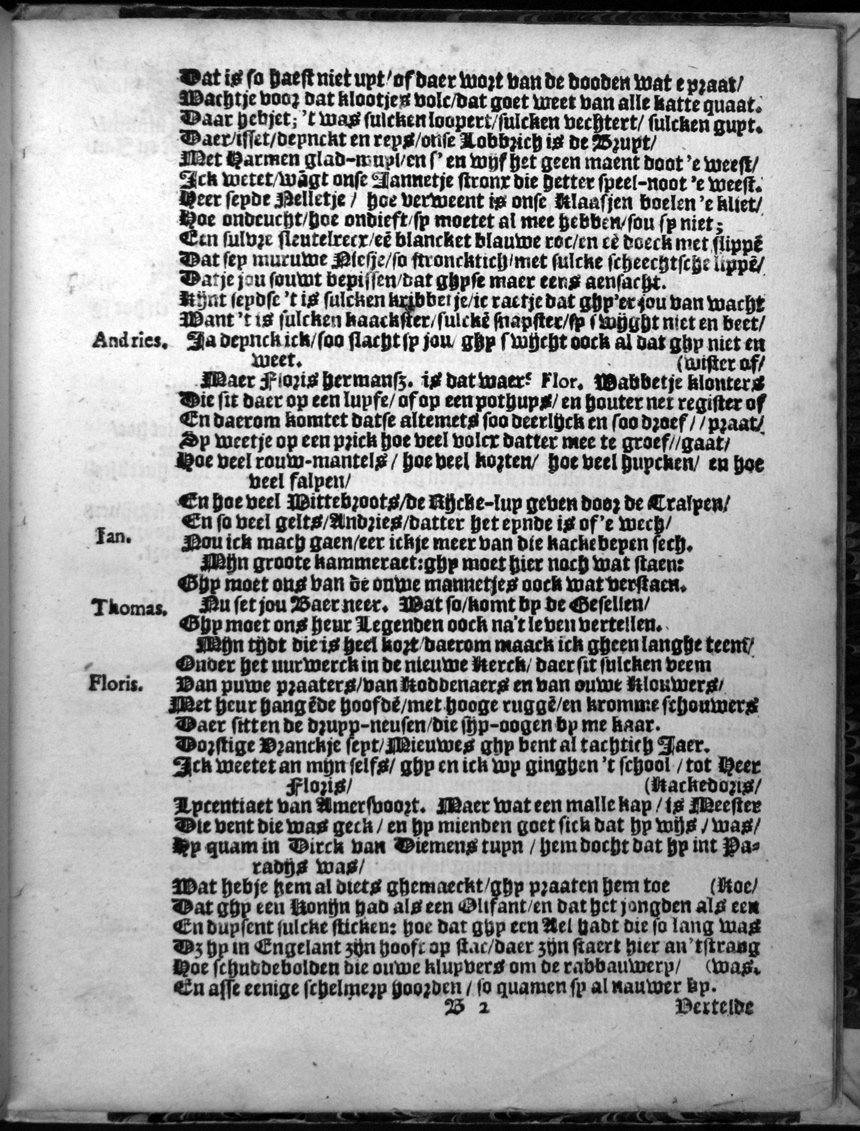 Dat is so haest niet uyt/of daer wort van de dooden wat e praat/
Wachtje voor dat klootjes volc/dat goet weet van alle katte quaat.
Daar hebjet; 't was sulcken loopert/sulcken vechtert/ sulcken guyt.
Daer/isset/deynckt en reys/onse Lobbrich is de Bruyt/
Met Harmen glad-muyl/en s' en wijf het geen maent doot 'e weest/
Ick wetet/wāgt onse Jannetje stronx die hetter speel-noot 'e weest.
Heer seyde Nelletje / hoe verweent is onse Klaasjen boelen 'e kliet/
Hoe ondeucht/hoe ondieft/sy moetet al mee hebben/sou sy niet;
Een sulvre sleutelreex/eē blancket blauwe roc/en eē doeck met slippē
Dat sey muruwe Niesje/so stroncktich/met sulcke scheechtsche lippē/
Datje jou souwt bepissen/dat ghyse maer eens aensacht.
Kijnt seydse 't is sulcken kribbetje/ic raetje dat ghy'er jou van wacht
Want 't is sulcken kaackster/sulckē snapster/sy swijght niet en beet/
Andries. Ja deynck ick/soo slacht sy jou/ ghy swijcht oock al dat ghy niet en
weet. (wister of/
Maer Floris hermansz. is dat waer? Flor. Wabbetje klonters
Die sit daer op een luyfe/of op een pothuys/en houter net register of
En daerom komtet datse altemets soo deerlijck en soo droef//praat/
Sy weetje op een prick hoe veel volcx datter mee te groef//gaat/
Hoe veel rouw-mantels/ hoe veel korten/ hoe veel huycken/ en hoe
veel falyen/
En hoe veel Wittebroots/de Rijcke-luy geven door de Tralyen/
En so veel gelts/Andries/datter het eynde is of 'e wech/
Ian. Nou ick mach gaen/eer ickje meer van die kackebeyen sech.
Mijn groote kammeraet:ghy moet hier noch wat staen:
Ghy moet ons van de ouwe mannetjes oock wat verstaen.
Thomas. Nu set jou Baer neer. Wat so/komt by de Gesellen/
Ghy moet ons heur Legenden oock na't leven vertellen.
Mijn tijdt die is heel kort/daerom maack ick gheen langhe teem/
Onder het uurwerck in de nieuwe Kerck/ daer sit sulcken veem
Floris. Van puwe praaters/van Koddenaers en van ouwe Klouwers/
Met heur hangēde hoofdē/met hooge ruggē/en kromme schouwers
Daer sitten de druyp-neusen/die sijp-oogen by me kaar.
Dorstige Vranckje seyt/Nieuwes ghy bent al tachtich Jaer.
Ick weetet an mijn selfs/ ghy en ick wy ginghen 't school/tot Heer
Floris/ (Kackedoris/
Lycentiaet van Amersvoort. Maer wat een malle kap/is Meester
Die vent die was geck/en hy mienden goet sick dat hy wijs/was/
Hy quam in Dirck van Diemens tuyn/hem docht dat hy int Pa-
radijs was/
Wat hebje hem al diets ghemaeckt/ghy praaten hem toe (Koe/
Dat ghy een Konijn had als een Olifant/en dat het jongden als een
En duysent sulcke sticken: hoe dat ghy een Ael hadt die so lang was
Dz hy in Engelant zijn hooft op stac/daer zijn staert hier an'tstrang
Hoe schuddebolden die ouwe kluyvers om de rabbauwery/ (was.
En asse eenige schelmery hoorden/so quamen sy al nauwer by.
B 2 Vertelde